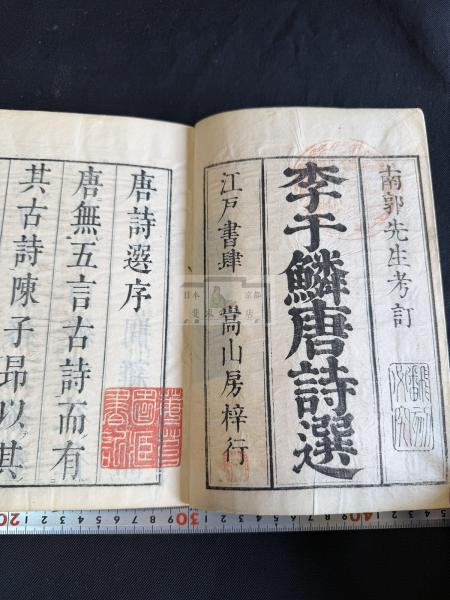 南郭先生考訂
李于鱗唐詩選
江戸書肆 嵩山房梓行
唐詩選序
唐無五言古詩而有
其古詩陳子昂以其
日本 京都